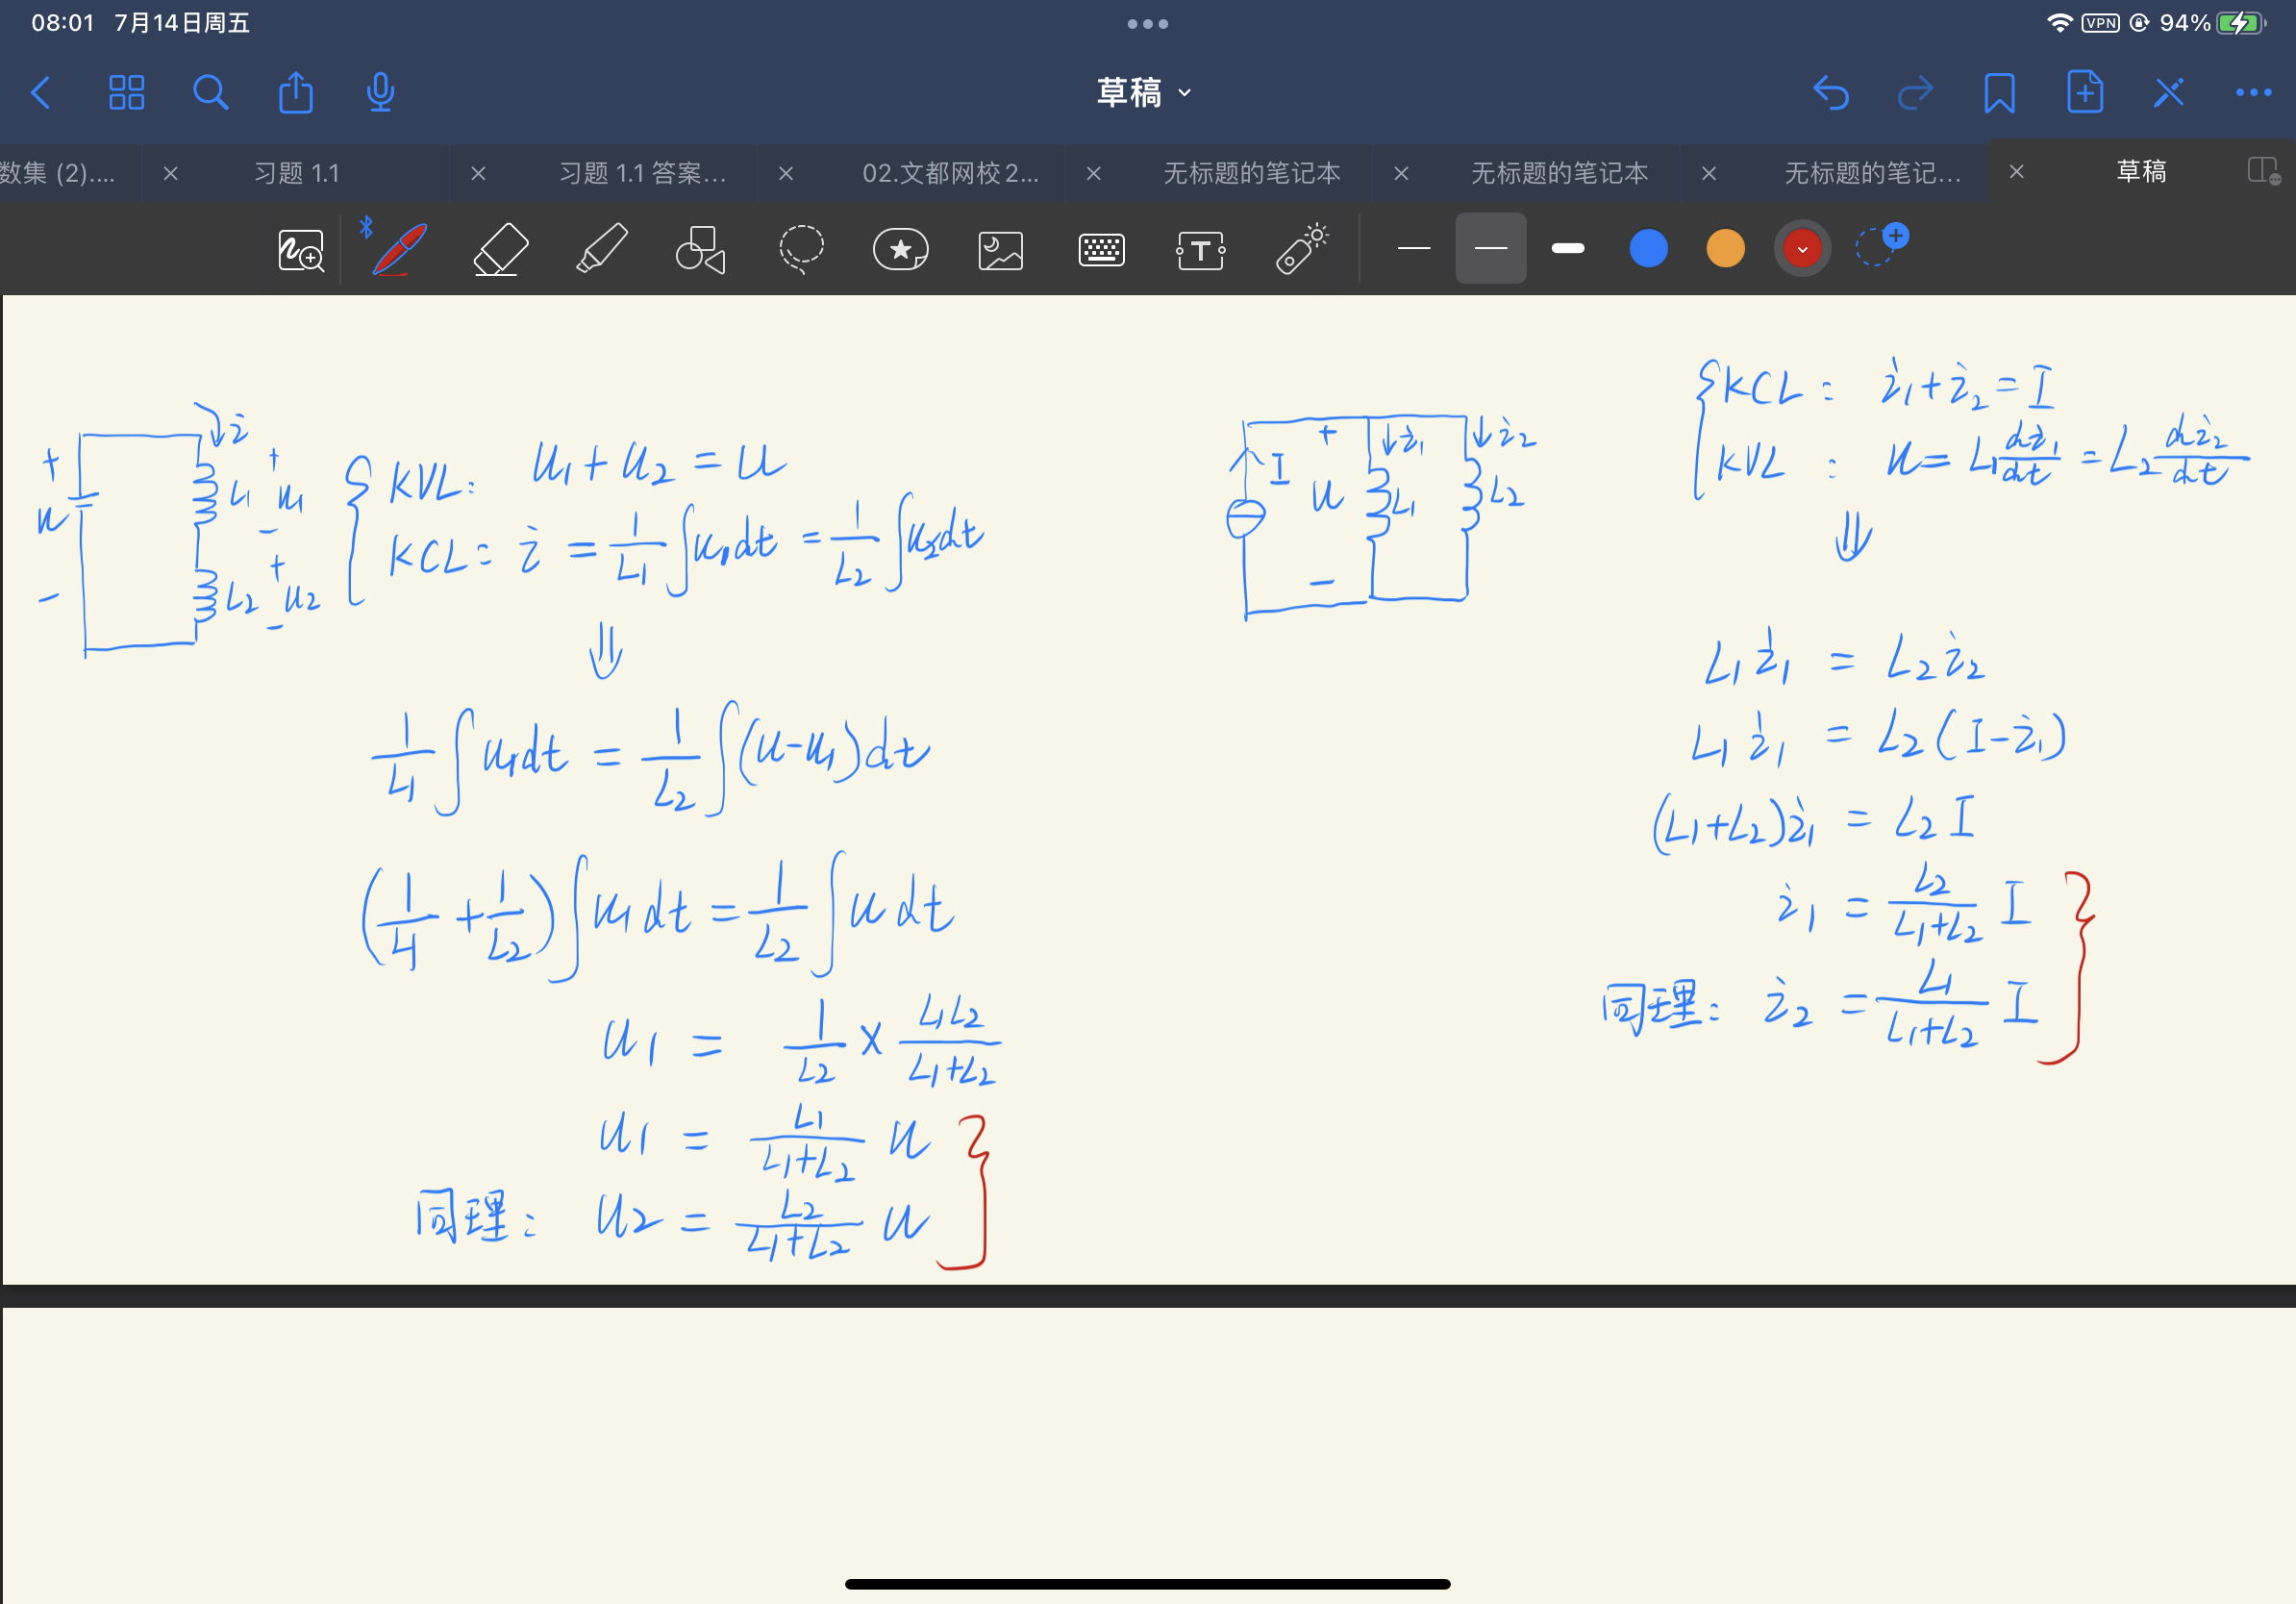 08:01 7月14日周五
VPN 94%
草稿
数集 (2)....
习题 1.1
习题 1.1 答案...
02.文都网校2...
无标题的笔记本
无标题的笔记本
无标题的笔记...
草稿
T
+ u − i L₁ + u₁ − L₂ + u₂ −
KVL: u₁+u₂=u
KCL: i = 1/L₁ ∫u₁dt = 1/L₂ ∫u₂dt
⇓
1/L₁ ∫u₁dt = 1/L₂ ∫(u-u₁)dt
(1/L₁ + 1/L₂) ∫u₁dt = 1/L₂ ∫u dt
u₁ = 1/L₂ × L₁L₂/(L₁+L₂)
u₁ = L₁/(L₁+L₂) u
同理: u₂ = L₂/(L₁+L₂) u
I + u − i₁ L₁ i₂ L₂
KCL: i₁+i₂=I
KVL: u=L₁ di₁/dt = L₂ di₂/dt
⇓
L₁i₁ = L₂i₂
L₁i₁ = L₂(I-i₁)
(L₁+L₂)i₁ = L₂I
i₁ = L₂/(L₁+L₂) I
同理: i₂ = L₁/(L₁+L₂) I